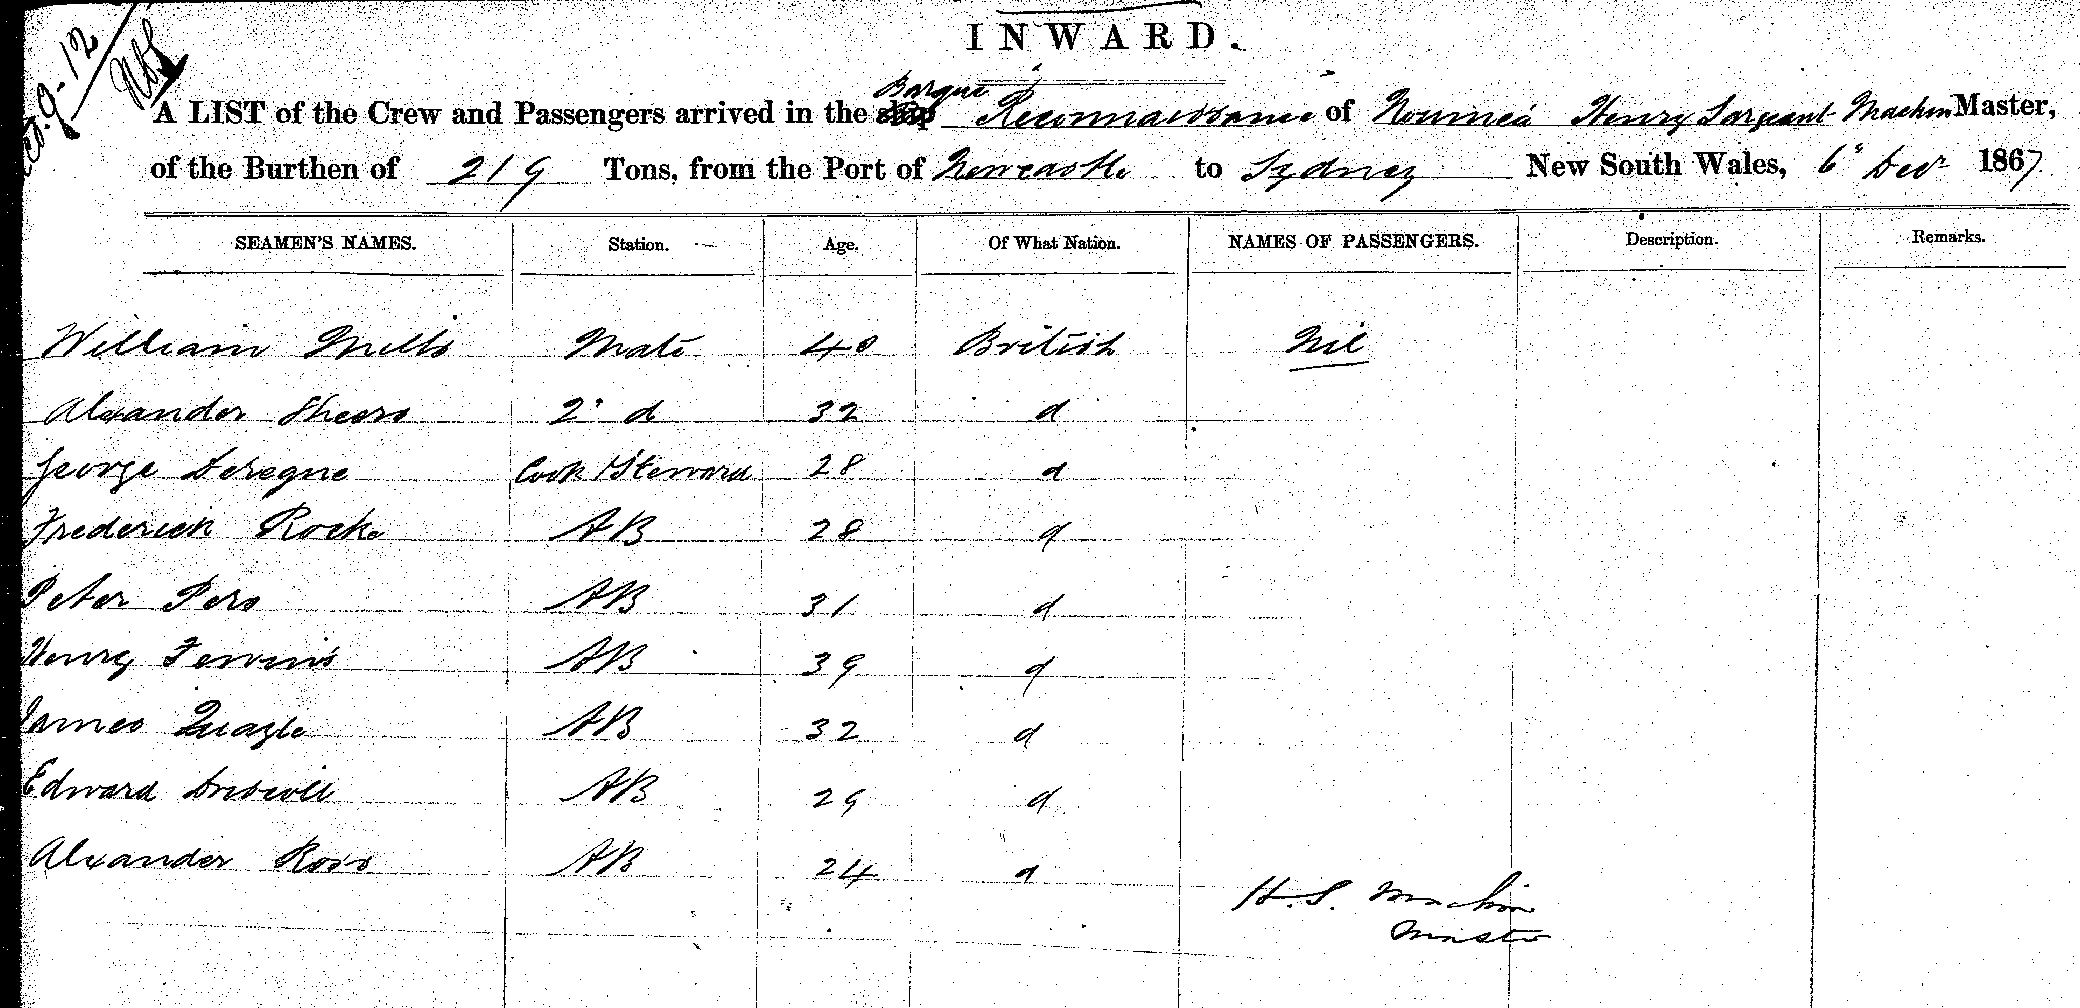 INWARD.
Barque
A LIST of the Crew and Passengers arrived in the ship Reconnaissance of Noumea Henry Sargeant Machin Master,
of the Burthen of 219 Tons, from the Port of Newcastle to Sydney New South Wales, 6" Decr 1867
SEAMEN'S NAMES. Station. Age. Of What Nation. NAMES OF PASSENGERS. Description. Remarks.
William Mills Mate 40 British Nil
Alexander Sheers 2d 32 d
George Cook / Steward 28 d
Frederick Rocke AB 28 d
Peter Pers AB 31 d
Henry AB 39 d
James Quagle AB 32 d
Edward Driscoll AB 29 d
Alexander Ross AB 24 d
H. S. Machin
Master